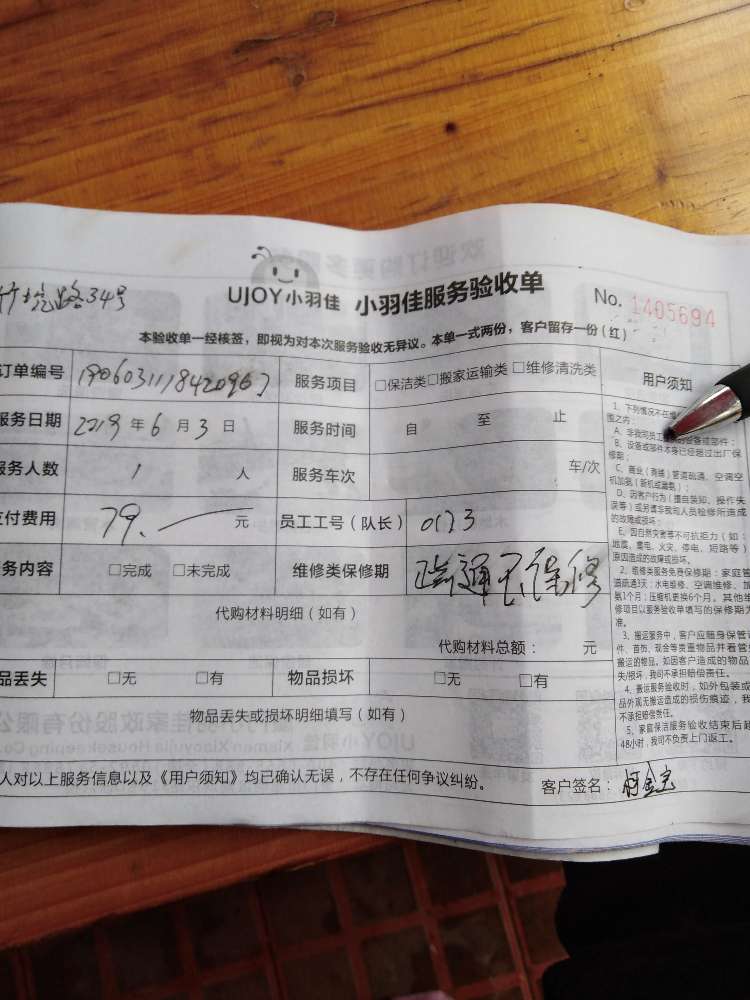 路34号
UJOY小羽佳 小羽佳服务验收单 No. 1405694
本验收单一经核签，即视为对本次服务验收无异议。本单一式两份，客户留存一份（红）
订单编号 服务项目 □保洁类□搬家运输类 □维修清洗类 用户须知
服务日期 2019 年 6 月 3 日 服务时间 自 至 止
服务人数 1 人 服务车次 车/次
应付费用 79. 元 员工工号（队长） 0123
务内容 □完成 □未完成 维修类保修期 疏通不保修
代购材料明细（如有）
代购材料总额： 元
品丢失 □无 □有 物品损坏 □无 □有
物品丢失或损坏明细填写（如有）
人对以上服务信息以及《用户须知》均已确认无误，不存在任何争议纠纷。 客户签名：
1、下列情况不在
围之内：
A、非我司员工 设备或部件；
B、设备或部件本身已经超过出厂保
修期；
C、商业（商铺）管道疏通、空调空
机加氨（新机或漏氨）；
D、因客户行为（擅自装卸、操作失
误等）或另请非我司人员检修所造成
的故障或损坏；
E、因自然灾害等不可抗拒力（如：
地震、雷电、火灾、停电、短路等）
原因造成的故障或损坏。
2、维修类服务免费保修期：家庭管
道疏通3天；水电维修、空调维修、加
氨1个月；压缩机更换6个月。其他维
修项目以服务验收单填写的保修期为
准。
3、搬运服务中，客户应随身保管证
件、首饰、现金等贵重物品并看管好
搬运的物品。如因客户造成的物品
失/损坏，我司不承担赔偿责任。
4、搬运服务验收时，如外包装或
品外观无搬运造成的损伤痕迹，我
不承担赔偿责任。
5、家庭保洁服务验收结束后超
48小时，我司不负责上门返工。